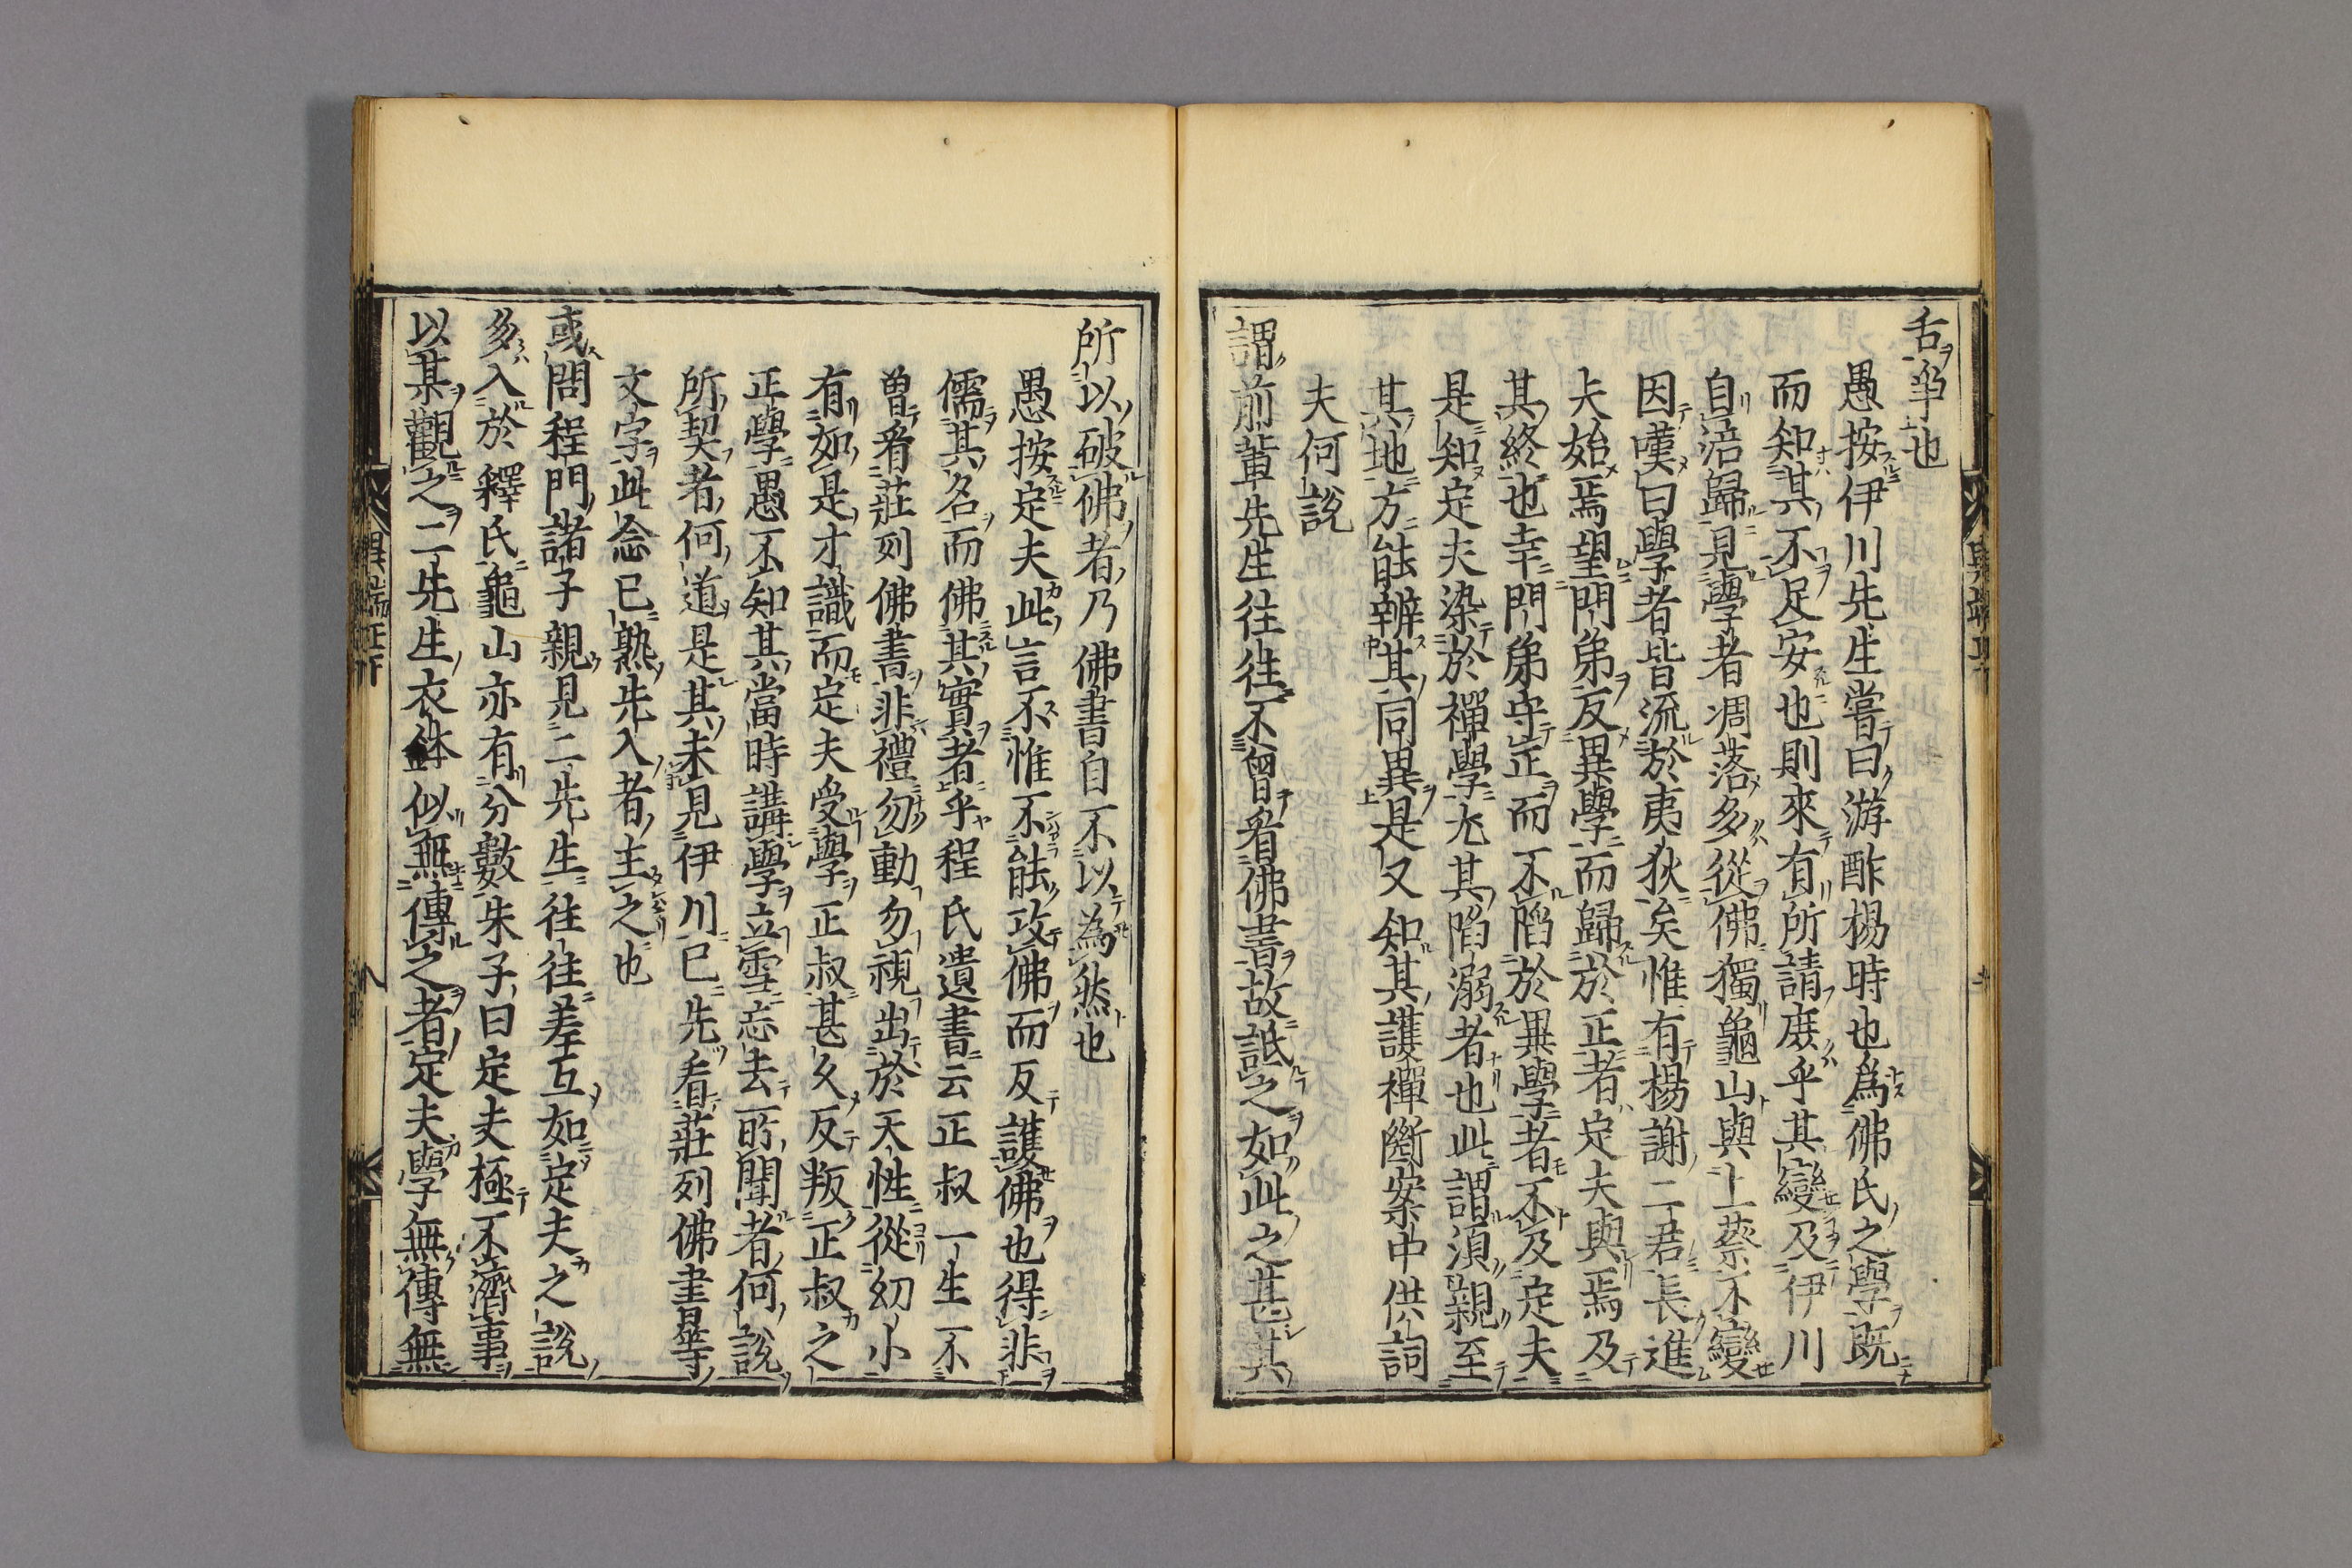 舌爭也
愚按伊川先生嘗曰游酢楊時也爲佛氏之學既
而知其不足安也則來有所請庶乎其變及伊川
自涪歸見學者凋落多從佛獨龜山與上蔡不變
因嘆曰學者皆流於夷狄矣惟有楊謝二君長進
夫始焉望門弟反異學而歸於正者定夫與焉及
其終也幸門弟守正而不陷於異學者不及定夫
是知定夫染於禪學尤其陷溺者也此謂須親至
其地方能辨其同異是又知其護禪斷案中供詞
夫何說
謂前輩先生往往不曾看佛書故詆之如此之甚其
所以破佛者乃佛書自不以為然也
愚按定夫此言不惟不能攻佛而反護佛也得非
儒其名而佛其實者乎程氏遺書云正叔一生不
曾看莊列佛書非禮勿動勿視出於天性從幼小
有如是才識而定夫受學正叔甚久反叛正叔之
正學愚不知其當時講學立雪忘去所聞者何說
所契者何道是其未見伊川已先看莊列佛書等
文字此念已熟先入者主之也
或問程門諸子親見二先生往往差互如定夫之說
多入於釋氏龜山亦有分數朱子曰定夫極不濟事
以某觀之二先生衣鉢似無傳之者定夫學無傳無
異端辯正下